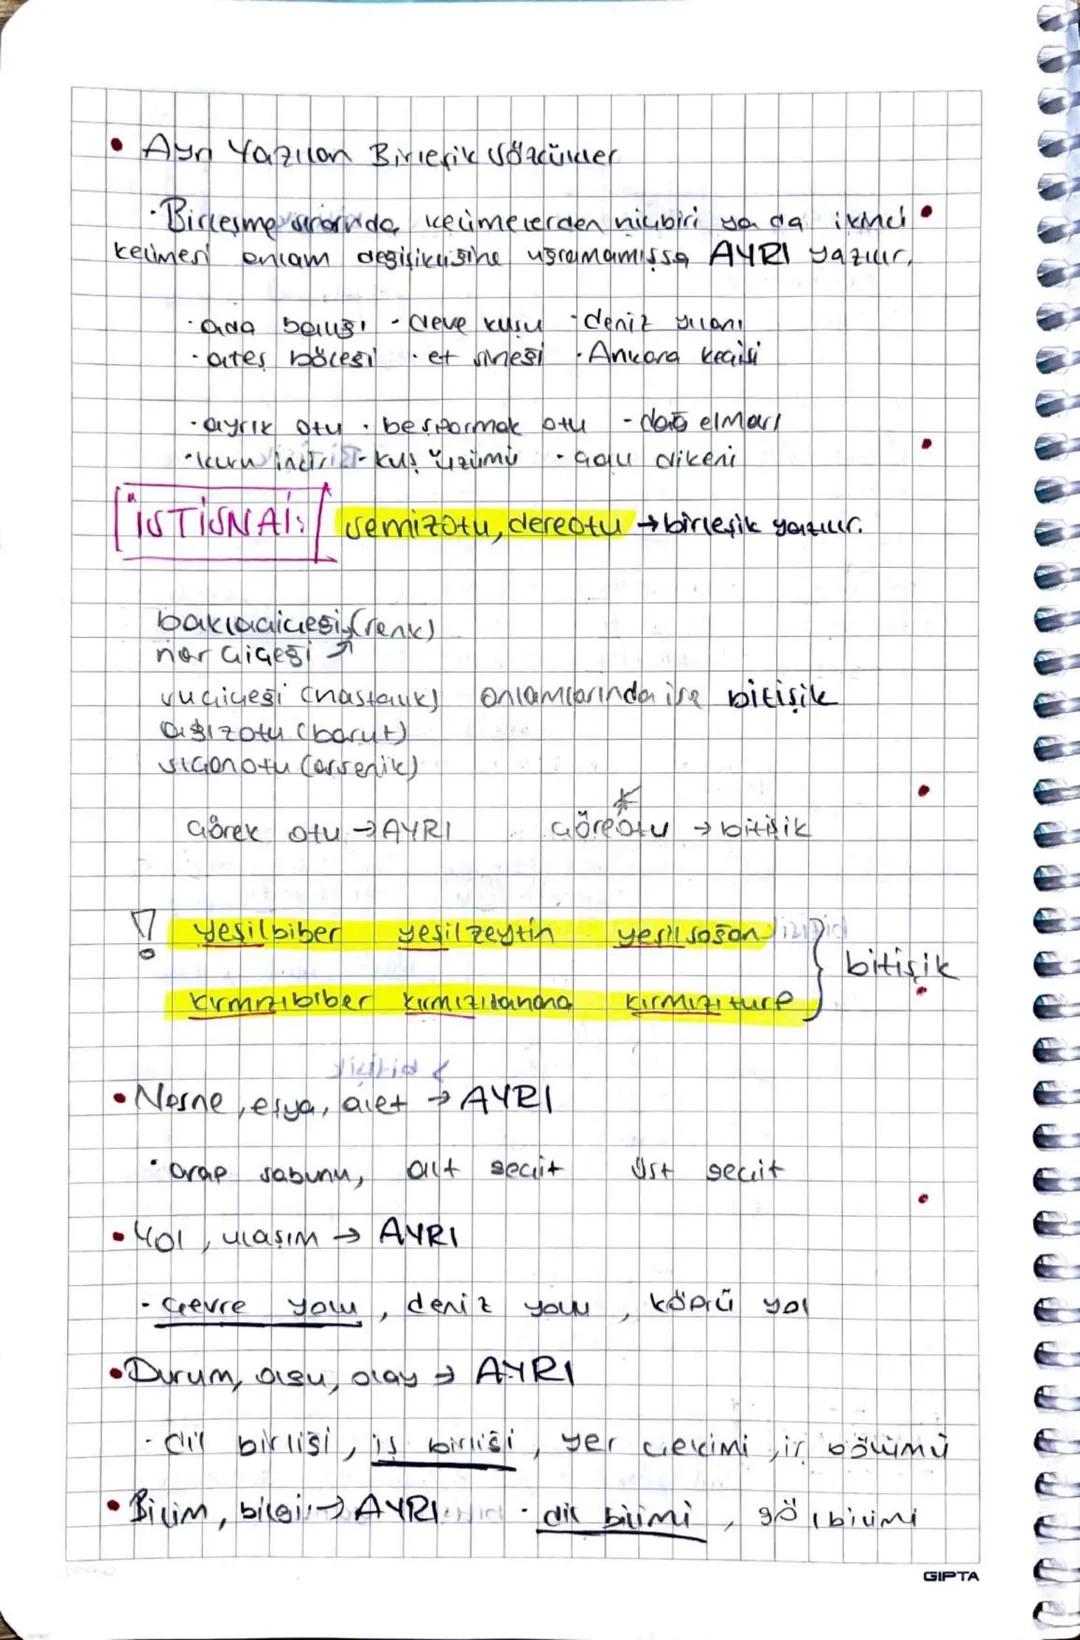 • Ayrı Yazılan Birleşik Sözcükler
·Birleşme sırasında, kelimelerden hiçbiri ya da ikinci
kelimesi anlam değişikliğine uğramamışsa AYRI yazılır,
·ada balığı -deve kuşu -deniz yılanı
·ateş böceği ·et sineği ·Ankara keçisi
·ayrık otu ·beşparmak otu -dağ elması
·kuru incir -kuş üzümü -çalı dikeni
İSTİSNAİ: semizotu, dereotu →birleşik yazılır.
baklaçiçeği (renk)
narçiçeği ↗
suçiçeği (hastalık) anlamlarında ise bitişik
ağızotu (barut)
sıçanotu (arsenik)
çörek otu →AYRI çöreotu → bitişik
! yeşilbiber yeşilzeytin yeşilsoğan
bitişik
kırmızıbiber kırmızılahana kırmızıturp
• Nesne, eşya, alet → AYRI
· arap sabunu, alt geçit üst geçit
• Yol, ulaşım → AYRI
- çevre yolu, deniz yolu, köprü yol
• Durum, olgu, olay → AYRI
- dil birliği, iş birliği, yer çekimi, iş bölümü
• Bilim, bilgi → AYRI · dil bilimi, gök bilimi
GIPTA